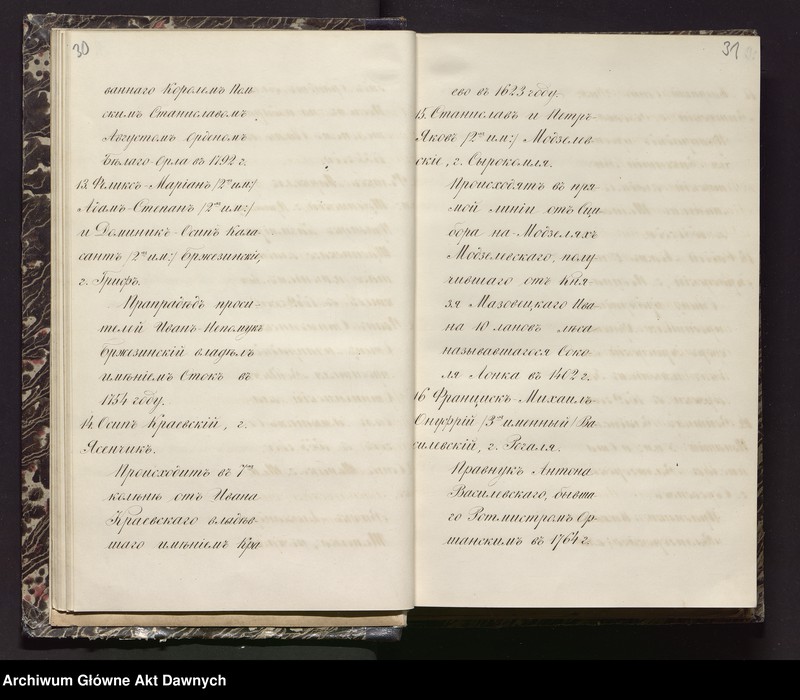 30
ваннаго Королемъ Поль
скимъ Станиславомъ
Августомъ орденомъ
Бѣлаго Орла въ 1792 г.
13. Феликсъ-Маріанъ /2хъ им:/
Адамъ-Степанъ /2хъ им:/
и Доминикъ-Осипъ Кала
сантъ /2хъ им:/ Бржезинскіе,
г. Грифъ.
Прапрадѣдъ проси-
телей Иванъ-Непомукъ
Бржезинскій владѣлъ
имѣніемъ Стокъ въ
1754 году.
14. Осипъ Краевскій, г.
Ясенчикъ.
Происходитъ въ 7мъ
колѣнѣ отъ Ивана
Краевскаго владѣв-
шаго имѣніемъ Кра
31
ево въ 1623 году.
15. Станиславъ и Петръ-
Яковъ /2хъ им:/ Модзелев
скіе, г. Сырокомля.
Происходятъ въ пря-
мой линіи отъ Сци
бора на-Модзеляхъ
Модзелевскаго, полу
чившаго отъ Кня
зя Мазовецкаго Ива-
на 10 лановъ лѣса
называвшагося Соко-
ля Лонка въ 1402 г.
16 Францискъ-Михаилъ-
Онуфрій /3хъ именный/ Ва
силевскій, г. Рогаля.
Правнукъ Антона
Василевскаго, бывша
го Ротмистромъ Ор-
шанскимъ въ 1764 г.
Archiwum Główne Akt Dawnych